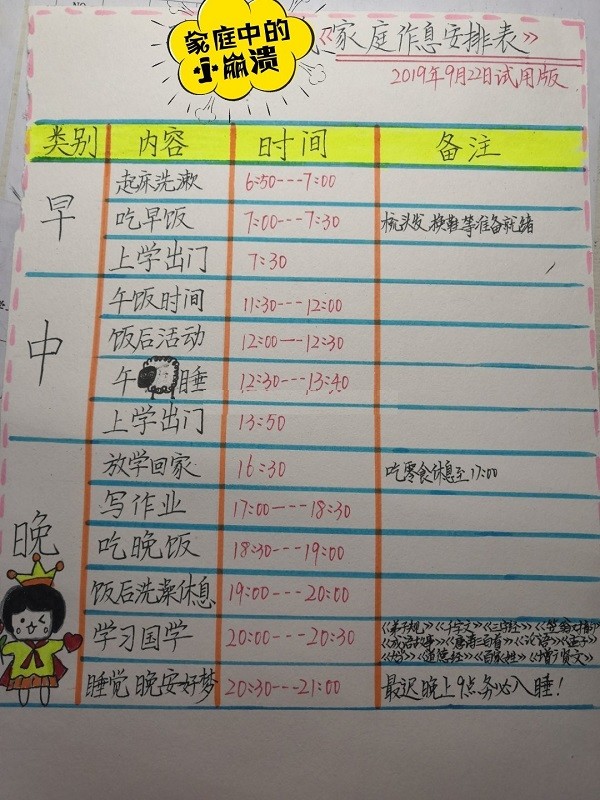 家庭中的
小崩溃
《家庭作息安排表》
2019年9月22日试用版
类别 内容 时间 备注
早
起床洗漱 6:50---7:00
吃早饭 7:00---7:30 梳头发、换鞋等准备就绪
上学出门 7:30
中
午饭时间 11:30---12:00
饭后活动 12:00---12:30
午睡 12:30---13:40
上学出门 13:50
晚
放学回家 16:30 吃零食休息至17:00
写作业 17:00---18:30
吃晚饭 18:30---19:00
饭后洗澡休息 19:00---20:00
学习国学 20:00---20:30
《弟子规》《千字文》《三字经》《笠翁对韵》
《成语故事》《唐诗三百首》《论语》《孟子》
《道德经》《百家姓》《增广贤文》
睡觉 晚安好梦 20:30---21:00 最迟晚上9点务必入睡!